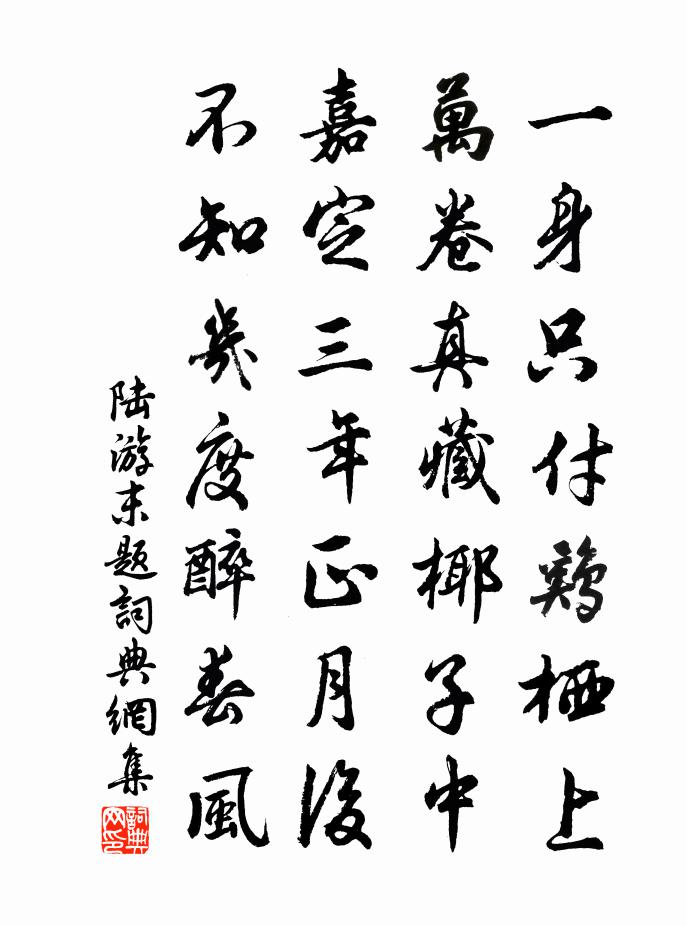 一身只付鷄栖上
萬卷真藏椰子中
嘉定三年正月後
不知幾度醉春風
陆游未題詞典網集
詞典网印